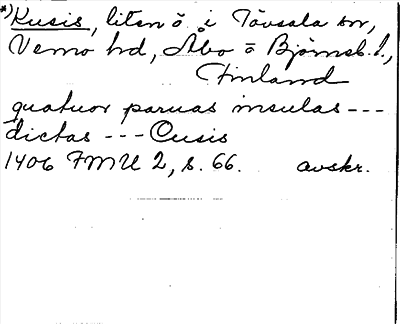 *) Kusis, liten ö i Tövsala sn,
Vemo hd, Åbo o Björneb. l.,
Finland
quatuor paruas insulas ---
dictas --- Cusis
1406 FMU 2, s. 66. avskr.